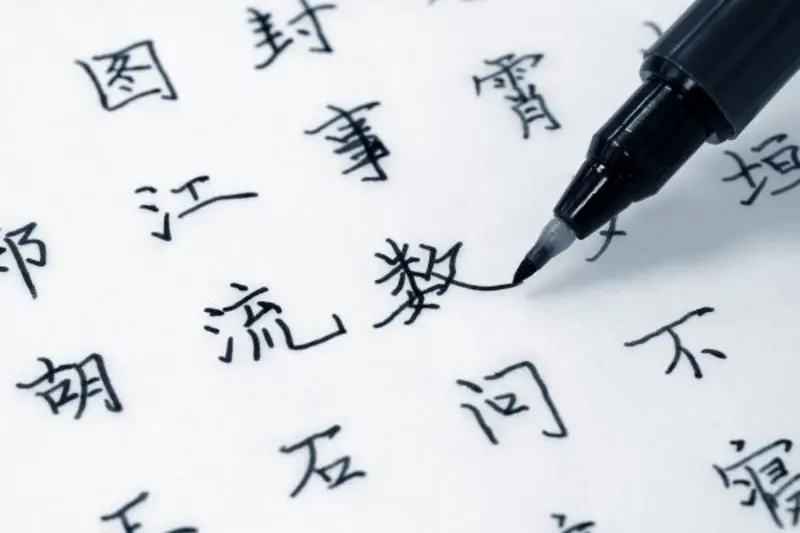 垣
霄不寝
封事数问
图江流石
胡